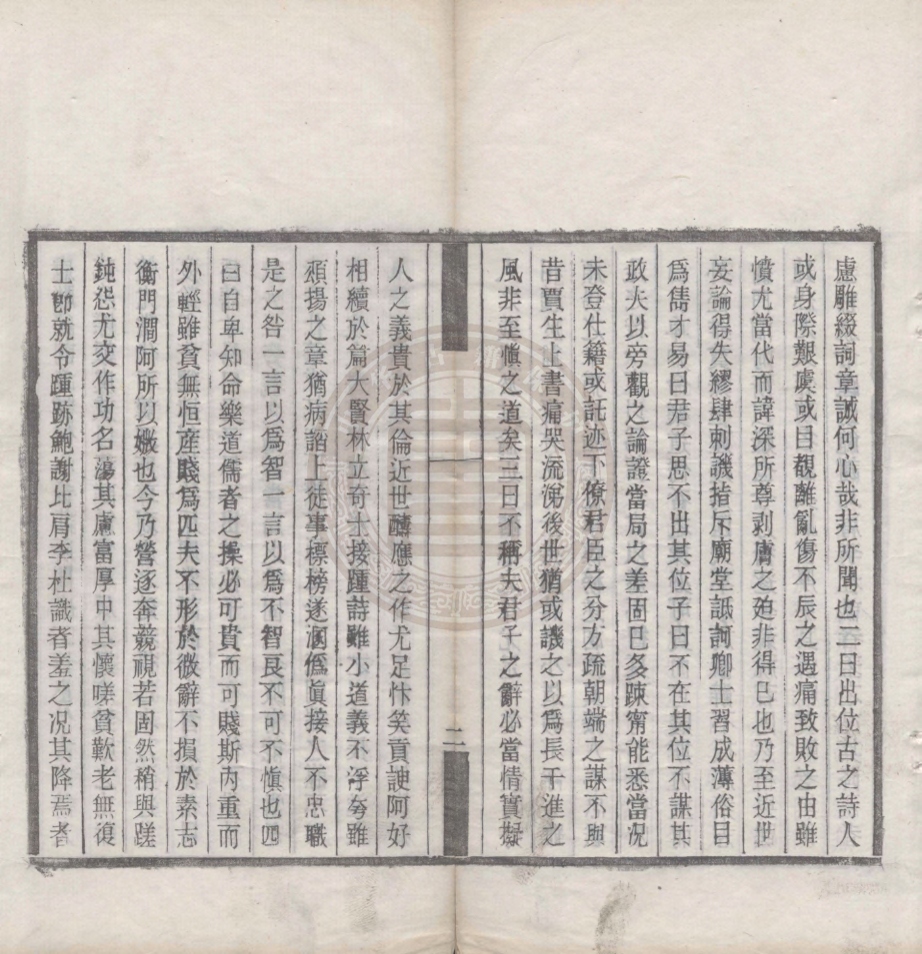 慮雕綴詞章誠何心哉非所聞也二曰出位古之詩人
或身際艱虞或目覩離亂傷不辰之遇痛致敗之由雖
憤尤當代而諱深所尊剥膚之廹非得已也乃至近世
妄論得失繆肆刺譏指斥廟堂詆訶卿士習成薄俗目
爲儁才易曰君子思不出其位子曰不在其位不謀其
政夫以旁觀之論證當局之差固已多踈甯能悉當况
未登仕籍或託迹下僚君臣之分方疏朝端之謀不與
昔賈生上書痛哭流涕後世猶或譏之以爲長干進之
風非至愼之道矣三曰不稱夫君子之辭必當情實擬
二
人之義貴於其倫近世醻應之作尤足忭笑貢諛阿好
相續於篇大賢林立奇士接踵詩雖小道義不浮夸雖
頌揚之章猶病諂上徒事標榜遂溷僞眞接人不忠職
是之咎一言以爲智一言以爲不智良不可不愼也四
曰自卑知命樂道儒者之操必可貴而可賤斯內重而
外輕雖貧無恒産賤爲匹夫不形於微辭不損於素志
衡門澗阿所以媺也今乃營逐奔競視若固然稍與蹉
鈍怨尤交作功名蕩其慮富厚中其懷嗟貧歎老無復
士節就令踵跡鮑謝比肩李杜識者羞之况其降焉者